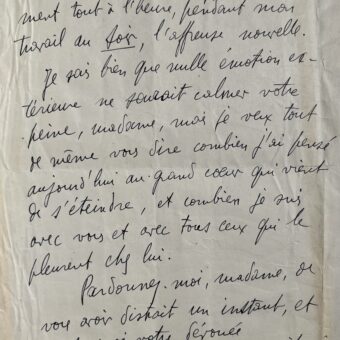 ment tout à l'heure, pendant mon
travail du soir, l'affreuse nouvelle.
Je sais bien que nulle émotion ex-
térieure ne saurait calmer votre
peine, madame, mais je veux tout
de même vous dire combien j'ai pensé
aujourd'hui au grand cœur qui vient
de s'éteindre, et combien je suis
avec vous et avec tous ceux qui le
pleurent chez lui.
Pardonnez-moi, madame, de
vous avoir distrait un instant, et
votre dévouée